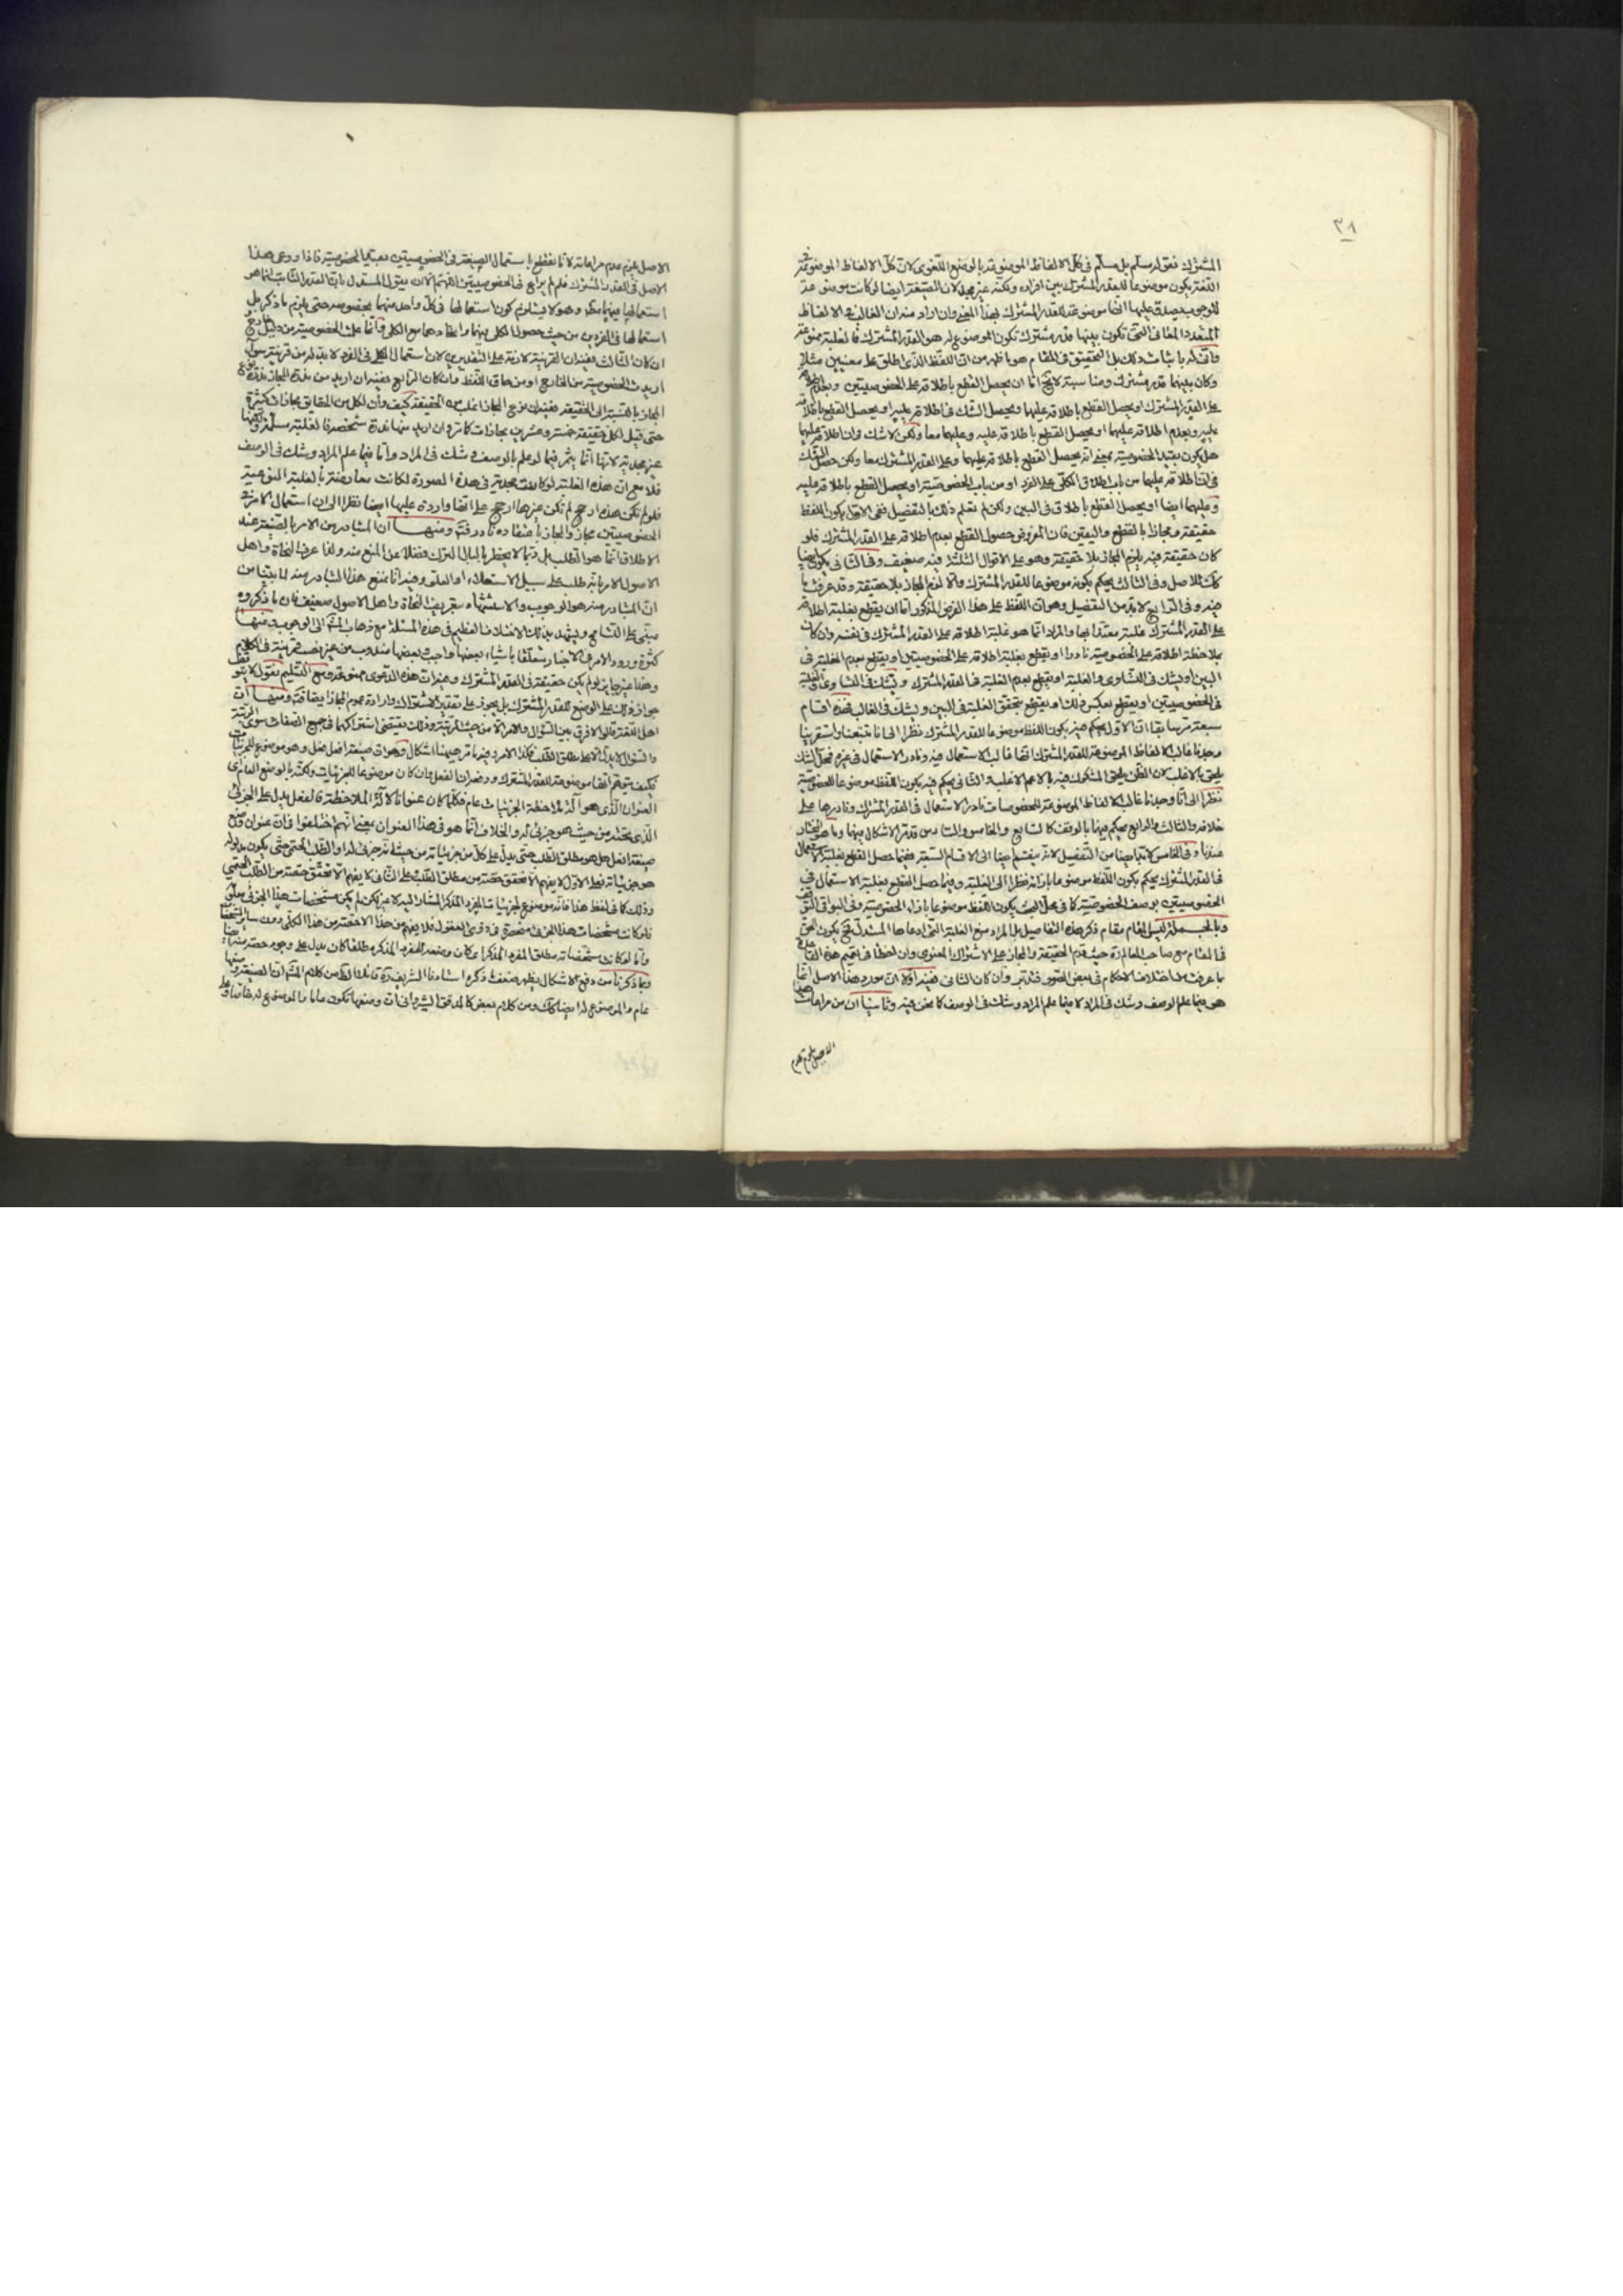 ٣٨
المشترك فقوله مسلّم بل مسلّم في كلّ الالفاظ الموضوعة بالوضع اللّغوى لانّ كلّ الالفاظ الموضوعة في
اللّغة يكون موضوعاً للقدر المشترك بين افراده ولكنه غير مجد لانّ الصّيغة ايضا لو كانت موضوعة
للوجوب يصدق عليها انّها موضوعة للقدر المشترك بهذا المعنى وان اراد منه ان الغالب في الالفاظ
المتعدد المعانى الّتى تكون بينها قدر مشترك تكون الموضوع له هو القدر المشترك فالغلبة ممنوعة
وانّى له باثبات ذلك بل التحقيق في المقام هو ما ظهر من انّ اللّفظ الّذى اطلق على معنيين مثلا
وكان بينهما قدر مشترك ومناسبة لا يخ امّا ان يحصل القطع باطلاقه على الخصوصيتين وبعدم اطلاقه
على القدر المشترك او يحصل القطع باطلاقه عليهما ويحصل الشّك في اطلاقه عليه او يحصل القطع باطلاقه
عليه وبعدم اطلاقه عليهما او يحصل القطع باطلاقه عليه وعليهما معا ولكن لا شك في ان اطلاقه عليهما
هل يكون بقيد الخصوصية بمعنى انّه يحصل القطع باطلاقه عليهما وعلى القدر المشترك معا ولكن حصل الشك
في انّ اطلاقه عليهما من باب اطلاق الكلّى على الفرد او من باب الخصوصيّة او يحصل القطع باطلاقه عليه
وعليهما ايضا او يحصل القطع باطلاق في البين ولكن لم نعلم ذلك بالتفصيل ففى الاوّل يكون اللفظ
حقيقة ومجازا بالقطع واليقين فان المفروض حصول القطع بعدم اطلاقه على القدر المشترك فلو
كان حقيقة فيه يلزم المجاز بلا حقيقة وهو على الاقوال الثلثة فيه ضعيف وفي الثاني يكون ايضا
كك للاصل وفي الثالث يحكم بكونه موضوعا للقدر المشترك والّا لزم المجاز بلا حقيقة وقد عرفت ما
فيه وفي الرّابع لا بدّ من التفصيل وهو انّ اللّفظ على هذا الفرض المذكور امّا ان يقطع بغلبة اطلاقه
على القدر المشترك غلبة معتدّا بها والمراد انّما هو غلبة اطلاقه على القدر المشترك في نفسه وان كان
بملاحظة اطلاقه على الخصوصيّة نادرا او يقطع بغلبة اطلاقه على الخصوصيتين او يقطع بعدم الغلبة في
البين او يشك في التّساوى والغلبة او يقطع بعدم الغلبة في القدر المشترك ويشك في التساوى والغلبة
في الخصوصيتين او يقطع بعكس ذلك او يقطع بتحقق الغلبة في البين ويشك في الغالب فهذه اقسام
سبعة مرّ سابقا انّ الاوّل يحكم فيه بكون اللفظ موضوعا للقدر المشترك نظرا الى انا تتبعنا واستقرينا
وجدنا غالب الالفاظ الموضوعة للقدر المشترك انّها غالب الاستعمال فيه ونادر الاستعمال في غيره فمحلّ الشك
يلحق بالاغلب لان الظّن يلحق المشكوك فيه بالاعم الاغلب والثانى يحكم فيه بكون اللّفظ موضوعا للخصوصيّة
نظرا الى انّا وجدنا غالب الالفاظ الموضوعة للخصوصات نادر الاستعمال في القدر المشترك ونادرها على
خلافه والثالث والرابع يحكم فيهما بالوقف كالسّابع والخامس والسّادس قد مرّ الاشكال فيهما وما هو المختار
عندنا وفي الخامس
في القدر المشترك يحكم بكون اللّفظ موضوعا بازائه نظرا الى الغلبة وفيما حصل القطع بغلبة الاستعمال في
الخصوصيتين بوصف الخصوصيّة كما في محلّ البحث يكون اللّفظ موضوعا بازاء الخصوصيّة وفي البواقى التوقف
وبالجملة ليس المقام مقام ذكر هذه التفاصيل بل المراد منع الغلبة التى ادعاها المستدل فح يكون الحق
في المقام مع صاحب المعالم ره حيث قدّم الحقيقة والمجاز على الاشتراك المعنوى وان اخطأ في تعميم هذه القاعدة
لما عرفت من اختلاف الاحكام في بعض الصّور فتدبّر وان كان الثانى ففيه اوّلا انّ مورد هذا الاصل انّما
هو فيما علم الوصف وشك في المراد لا فيما علم المراد وشك في الوصف كما نحن فيه وثانيا انّ من مراعات هذا
الاصل يلزم عدم
الاصل يلزم عدم مراعاته لانّا نقطع باستعمال الصّيغة في الخصوصيتين بقيد الخصوصية فاذا روعى هذا
الاصل في القدر المشترك فلم يراع في الخصوصيتين اللّهم الّا ان يقول المستدل بانّ القدر الثّابت انما هو
استعمالها فيهما مطلقا وهو لا يستلزم كون استعمالها في كلّ واحد منهما بخصوصه حتى يلزم ما ذكر بل
استعمالها في الفردين من حيث حصول الكلى فيهما واتحادهما مع الكلى وانّما علمت الخصوصية من دليل خارج و
ان كان الثالث ففيه ان القرينة لازمة على التقديرين لان استعمال الكلى في الفرد لا بدّ له من قرينة سواء
اريدت الخصوصية من الخارج او من حاق اللّفظ وان كان الرّابع ففيه ان اريد من ندرة المجاز ندرة نوع
المجاز بالنسبة الى الحقيقة ففيه ان نوع المجاز اغلب من الحقيقة كيف وان لكل من الحقايق مجازات كثيرة
حتى قيل لكل حقيقة خمسة وعشرين مجازات كما مرّ وان اريد منها ندرة شخصه فالغلبة مسلّمة ولكنها
غير مجدية لانّها انّما يثمر فيما لو علم بالوصف وشك في المراد وامّا فيما علم المراد وشك في الوصف
فلا مع ان هذه الغلبة لو كانت مجدية في هذه الصورة لكانت معارضة بالغلبة النوعية
فلو لم تكن هذه ارجح لم تكن غيرها ارجح على انّها واردة عليها ايضا نظرا الى ان استعمال الامر في
الخصوصيتين مجاز والمجاز باعتقاده نادر فتأمّل ومنها ان المتبادر من الامر بالصّيغة عند
الاطلاق انّما هو الطلب بل ربّما لا يخطر بالبال الترك فضلا عن المنع منه ولذا عرف النحاة واهل
الاصول الامر بانّه طلب على سبيل الاستعلاء او العلو وفيه انّا نمنع هذا التبادر منه لما بيّنّا من
انّ المتبادر منه هو الوجوب والاستشهاد بتعريف النحاة واهل الاصول ضعيف فان ما ذكروه
مبنىّ على التسامح ويشهد بذلك الاختلاف العظيم في هذه المسئلة مع ذهاب الاكثر الى الوجوب ومنها
كثرة ورود الامر في الاخبار متعلّقا باشياء بعضها واجب وبعضها مندوب من غير نصب قرينة في الكلام
وهذا غير جايز لو لم يكن حقيقة في القدر المشترك وفيه انّ هذه الدعوى ممنوعة ومع التسليم نقول لا يتوقف
جواز ذلك على الوضع للقدر المشترك بل يجوز على تقدير الاشتراك وارادة عموم المجاز ايضا فتدبر ومنها ان
اهل اللّغة قالوا لا فرق بين السّؤال والامر الّا من حيث الرتبة وذلك يقتضى اشتراكهما في جميع الصفات سوى الرتبة
والسؤال لا يدلّ الّا على مطلق الطّلب فكذا الامر وفيه ما مرّ وهيهنا اشكال وهو انّ صيغة افعل فعل وهو موضوع للجزئيات
فكيف يتوهّم انّها موضوعة للقدر المشترك ودفعه ان الفعل وان كان موضوعا للجزئيات ولكنّه بالوضع العام اى
العنوان الّذى هو آلة لملاحظة الجزئيات عام فكلّما كان عنوانا لا آلة الملاحظة فالفعل يدلّ على الجزئى
الّذى تحته من حيث هو جزئى له والخلاف انّما هو في هذا العنوان بمعنى انّهم اختلفوا في انّ عنوان وضع
صيغة افعل هل هو مطلق الطّلب حتى يدلّ على كلّ من جزئياته من حيث انّه جزئى له او الطّلب الحتمى حتى يكون مدلوله
هو جزئياته فعلى الاوّل لا يفهم الا تحقق حصّة من مطلق الطّلب وعلى الثّانى لا يفهم الا تحقق حصّة من الطّلب الحتمى
وذلك كما في لفظ هذا فانّه موضوع لجزئيات المفرد المذكر المشار اليه
فلو كانت مشخصات هذا الجزئى منحصرة في ذوى العقول فلا يفهم من هذا الا حصّة من هذا الكلّى دون ساير المشخصات
وامّا لو كانت مشخّصاته مطلق المفرد المذكر اى كان وضعه للمفرد المذكر مطلقا كان يدلّ على وجود حصّة منه
وبما ذكرنا من دفع الاشكال يظهر ضعف ما ذكره استادنا الشّريف ره
عام والموضوع له ايضا كك ومن كلام بعض كالمدقق الشيروانى انّ وضعها تكون عاما والموضوع له خاصا